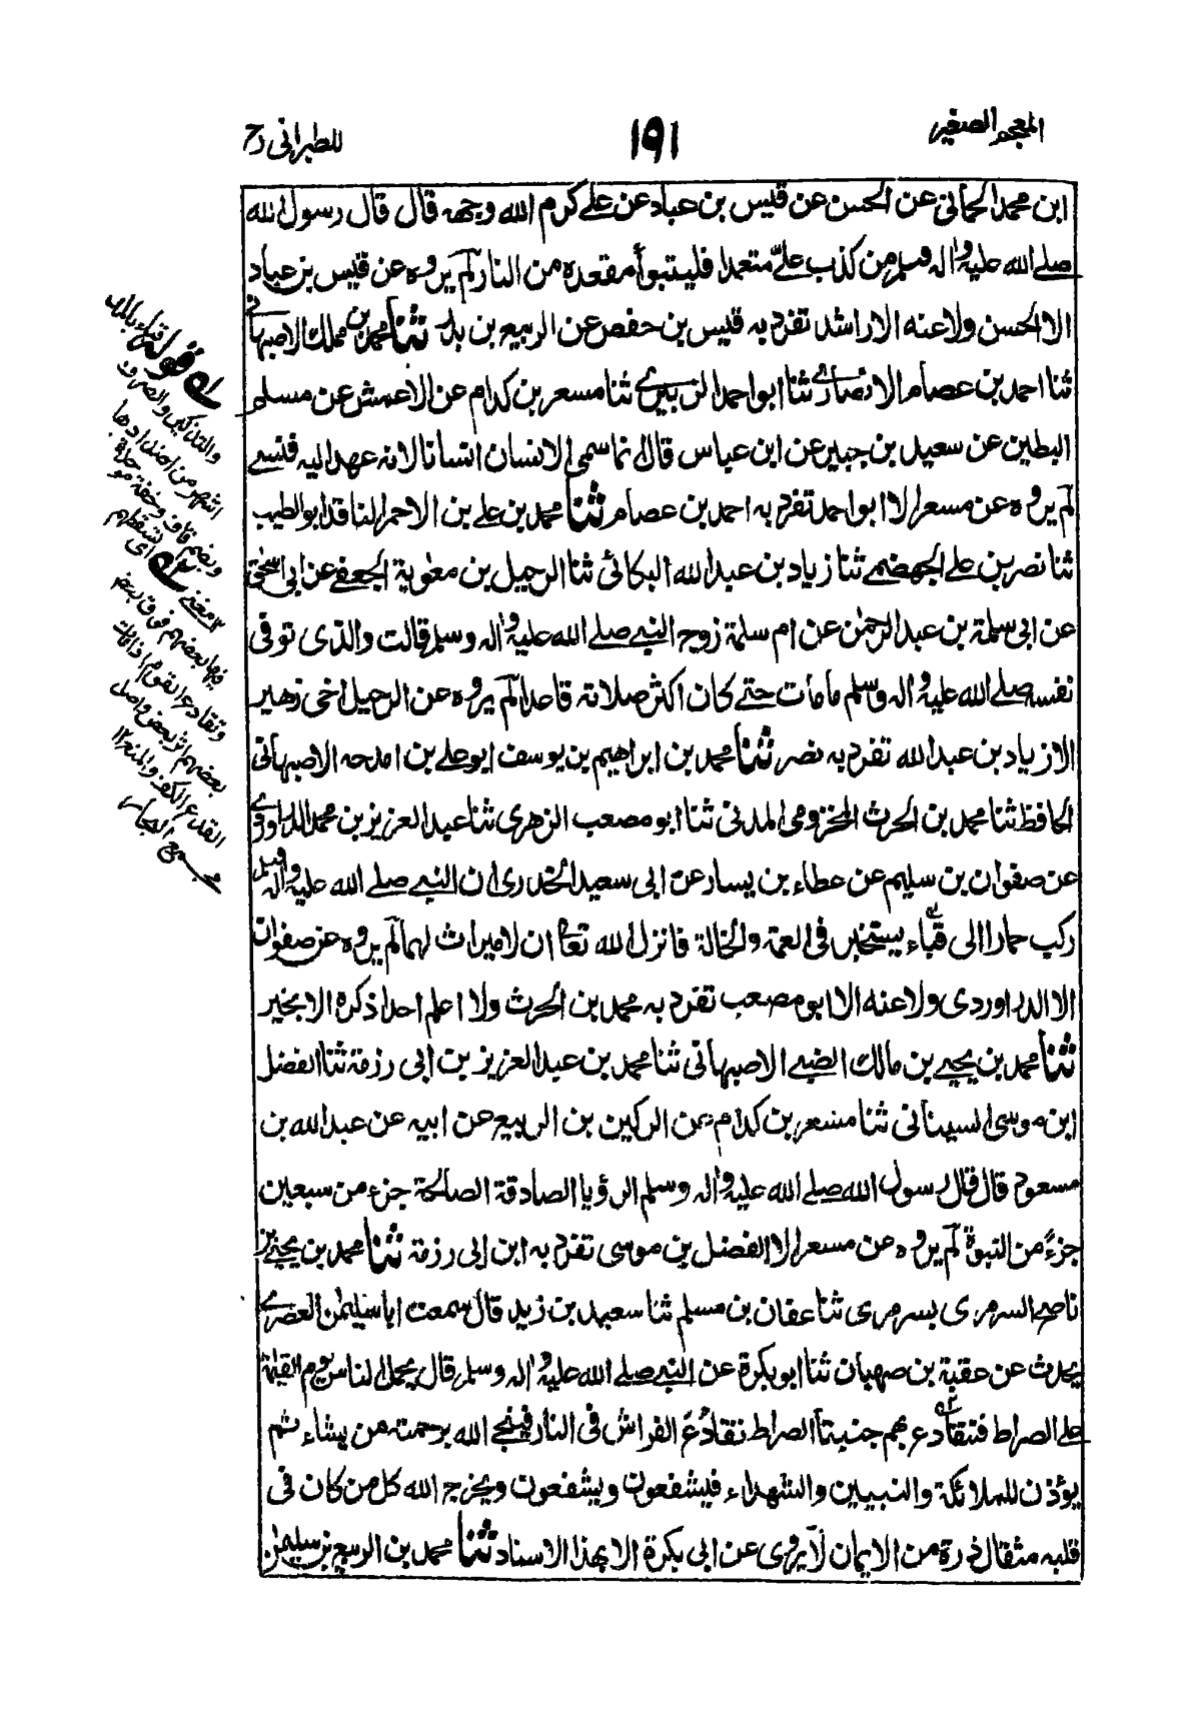 المعجم الصغير
١٩١
للطبرانى رح
ابن محمد الحمانى عن الحسن عن قيس بن عباد عن على كرم الله وجهه قال قال رسول الله
صلى الله عليه واله وسلم من كذب علىّ متعمدا فليتبوأ مقعده من النار لم يروه عن قيس بن عباد
الا الحسن ولا عنه الا راشد تفرد به قيس بن حفص عن الربيع بن بدر ثنا محمد بن مملك الاصبهانى
ثنا احمد بن عصام الانصارى ثنا ابو احمد الزبيرى ثنا مسعر بن كدام عن الاعمش عن مسلم
البطين عن سعيد بن جبير عن ابن عباس قال انما سمى الانسان انسانا لانه عهد اليه فنسى
لم يروه عن مسعر الا ابو احمد تفرد به احمد بن عصام ثنا محمد بن على بن الاحمر الناقد ابو الطيب
ثنا نصر بن على الجهضمى ثنا زياد بن عبد الله البكائى ثنا الرحيل بن معوية الجعفى عن ابى اسحق
عن ابى سلمة بن عبد الرحمن عن ام سلمة زوج النبى صلى الله عليه واله وسلم قالت والذى توفى
نفسه صلى الله عليه واله وسلم ما مات حتى كان اكثر صلاته قاعدا لم يروه عن الرحيل اخى زهير
الا زياد بن عبد الله تفرد به نصر ثنا محمد بن ابراهيم بن يوسف ابو على بن الاصبهانى
الحافظ ثنا محمد بن الحرث المخزومى المدنى ثنا ابو مصعب الزهرى ثنا عبد العزيز بن محمد الدراوردى
عن صفوان بن سليم عن عطاء بن يسار عن ابى سعيد الخدرى ان النبى صلى الله عليه واله وسلم
ركب حمارا الى قباء يستخير فى العمة والخالة فانزل الله تعالى ان لا ميراث لهما لم يروه عن صفوان
الا الدراوردى ولا عنه الا ابو مصعب تفرد به محمد بن الحرث ولا اعلم احدا ذكره الا بخير
ثنا محمد بن يحيى بن مالك الضبى الاصبهانى ثنا محمد بن عبد العزيز بن ابى رزمة ثنا الفضل
ابن موسى السينانى ثنا مسعر بن كدام عن الركين بن الربيع عن ابيه عن عبد الله بن
مسعود قال قال رسول الله صلى الله عليه واله وسلم الرؤيا الصادقة الصالحة جزء من سبعين
جزءً من النبوة لم يروه عن مسعر الا الفضل بن موسى تفرد به ابن ابى رزمة ثنا محمد بن يحيى بن
ناصر السرمرى بسرمرى ثنا عفان بن مسلم ثنا سعيد بن زيد قال سمعت ابا سليمن العصرى
يحدث عن عقبة بن صهبان ثنا ابو بكرة عن النبى صلى الله عليه واله وسلم قال يحمل الناس يوم القيمة
على الصراط فتتقادع بهم جنبتا الصراط تقادُعَ الفراش فى النار فينجى الله برحمته من يشاء ثم
يؤذن للملائكة والنبيين والشهداء فيشفعون ويشفعون ويخرج الله كل من كان فى
قلبه مثقال ذرة من الايمان لا يروى عن ابى بكرة الا بهذا الاسناد ثنا محمد بن الربيع بن سليمن
قوله قباء بالمد
والتذكير والصرف
اشهر من اضدادها
وبضم قاف وخفة موحدة
مغنى اى تسقطهم
فيها بعضهم فوق بعض
وتقادع القوم اذا مات
بعضهم اثر بعض واصل
القدع الكف والمنع ١٢
مجمع البحار